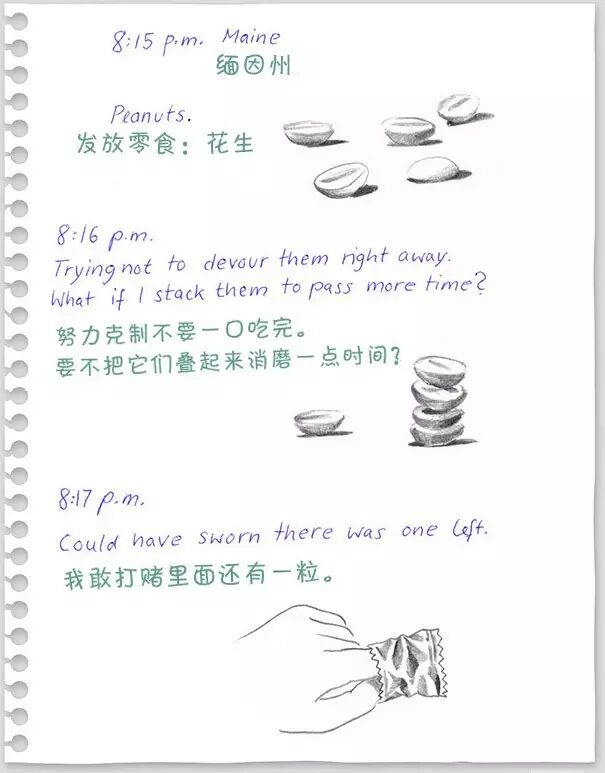 8:15 p.m. Maine
缅因州
Peanuts.
发放零食：花生
8:16 p.m.
Trying not to devour them right away.
What if I stack them to pass more time?
努力克制不要一口吃完。
要不把它们叠起来消磨一点时间？
8:17 p.m.
Could have sworn there was one left.
我敢打赌里面还有一粒。